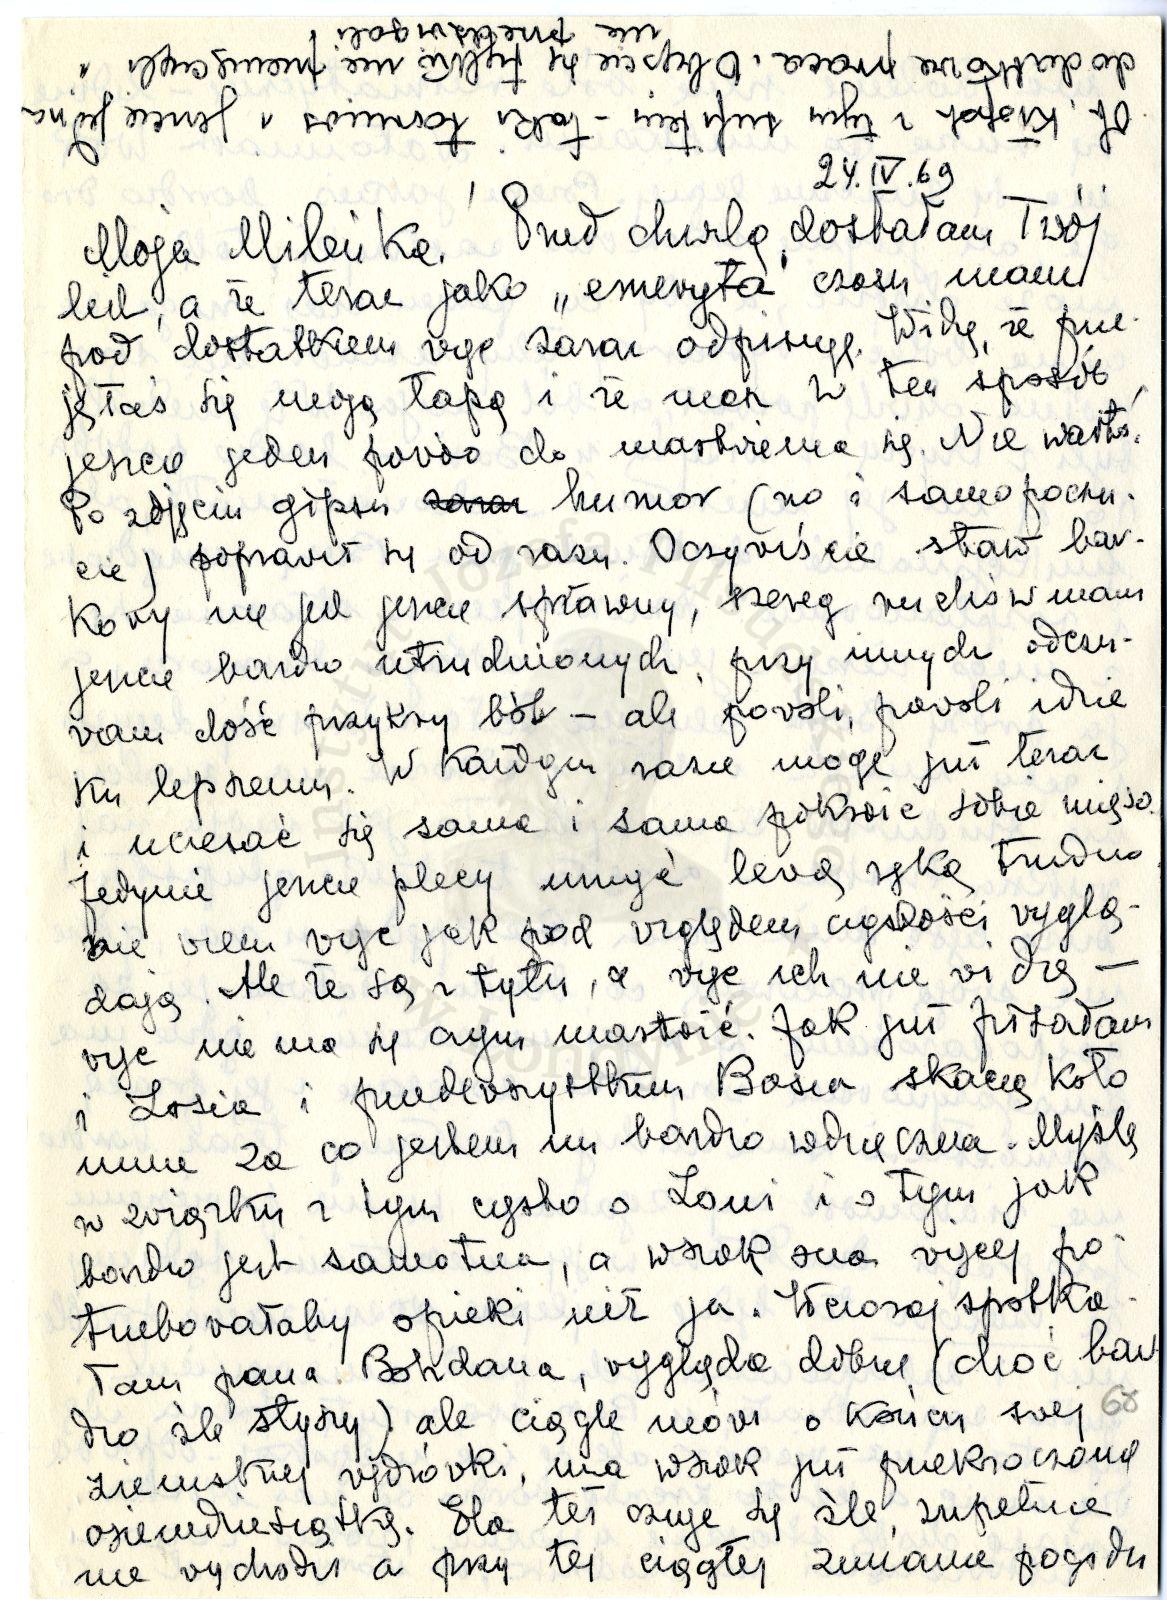 Ojej, kłopot z tym sufitem - taki kosmos i jeszcze jedna
dodatkowa praca. Obyście się tylko nie przemęczyli,
nie przedźwigali
24.IV.69
Moja Mileńka! Przed chwilą dostałam Twój
list, a że teraz jako „emeryta" czasu mam
pod dostatkiem więc zaraz odpisuję. Widzę, że prze-
jęłaś się moją łapą i że masz w ten sposób
jeszcze jeden powód do martwienia się. Nie warto!
Po zdjęciu gipsu humor (no i samopoczu-
cie) poprawił się od razu. Oczywiście staw bar-
kowy nie jest jeszcze sprawny, szereg ruchów mam
jeszcze bardzo utrudnionych, przy innych odczu-
wam dość przykry ból - ale powoli, powoli idzie
ku lepszemu. W każdym razie mogę już teraz
i uczesać się sama i sama pokroić sobie mięso.
Jedynie jeszcze plecy umyć lewą ręką trudno
nie wiem więc jak pod względem czystości wyglą-
dają. Ale że są z tyłu, a więc ich nie widzę -
więc nie ma się czym martwić. Jak już pisałam
i Zosia i przedewszystkim Basia skaczą koło
mnie za co jestem im bardzo wdzięczna. Myślę
w związku z tym często o Loni i o tym jak
bardzo jest samotna, a wszak ona więcej po-
trzebowałaby opieki niż ja. Wczoraj spotka-
łam pana Bohdana, wygląda dobrze (choć bar-
dzo źle słyszy) ale ciągle mówi o końcu swej
ziemskiej wędrówki, ma wszak już przekroczoną
osiemdziesiątkę. Ela też czuje się źle, zupełnie
nie wychodzi a przy tej ciągłej zmianie pogody
68
Instytut Józefa Piłsudskiego w Londynie